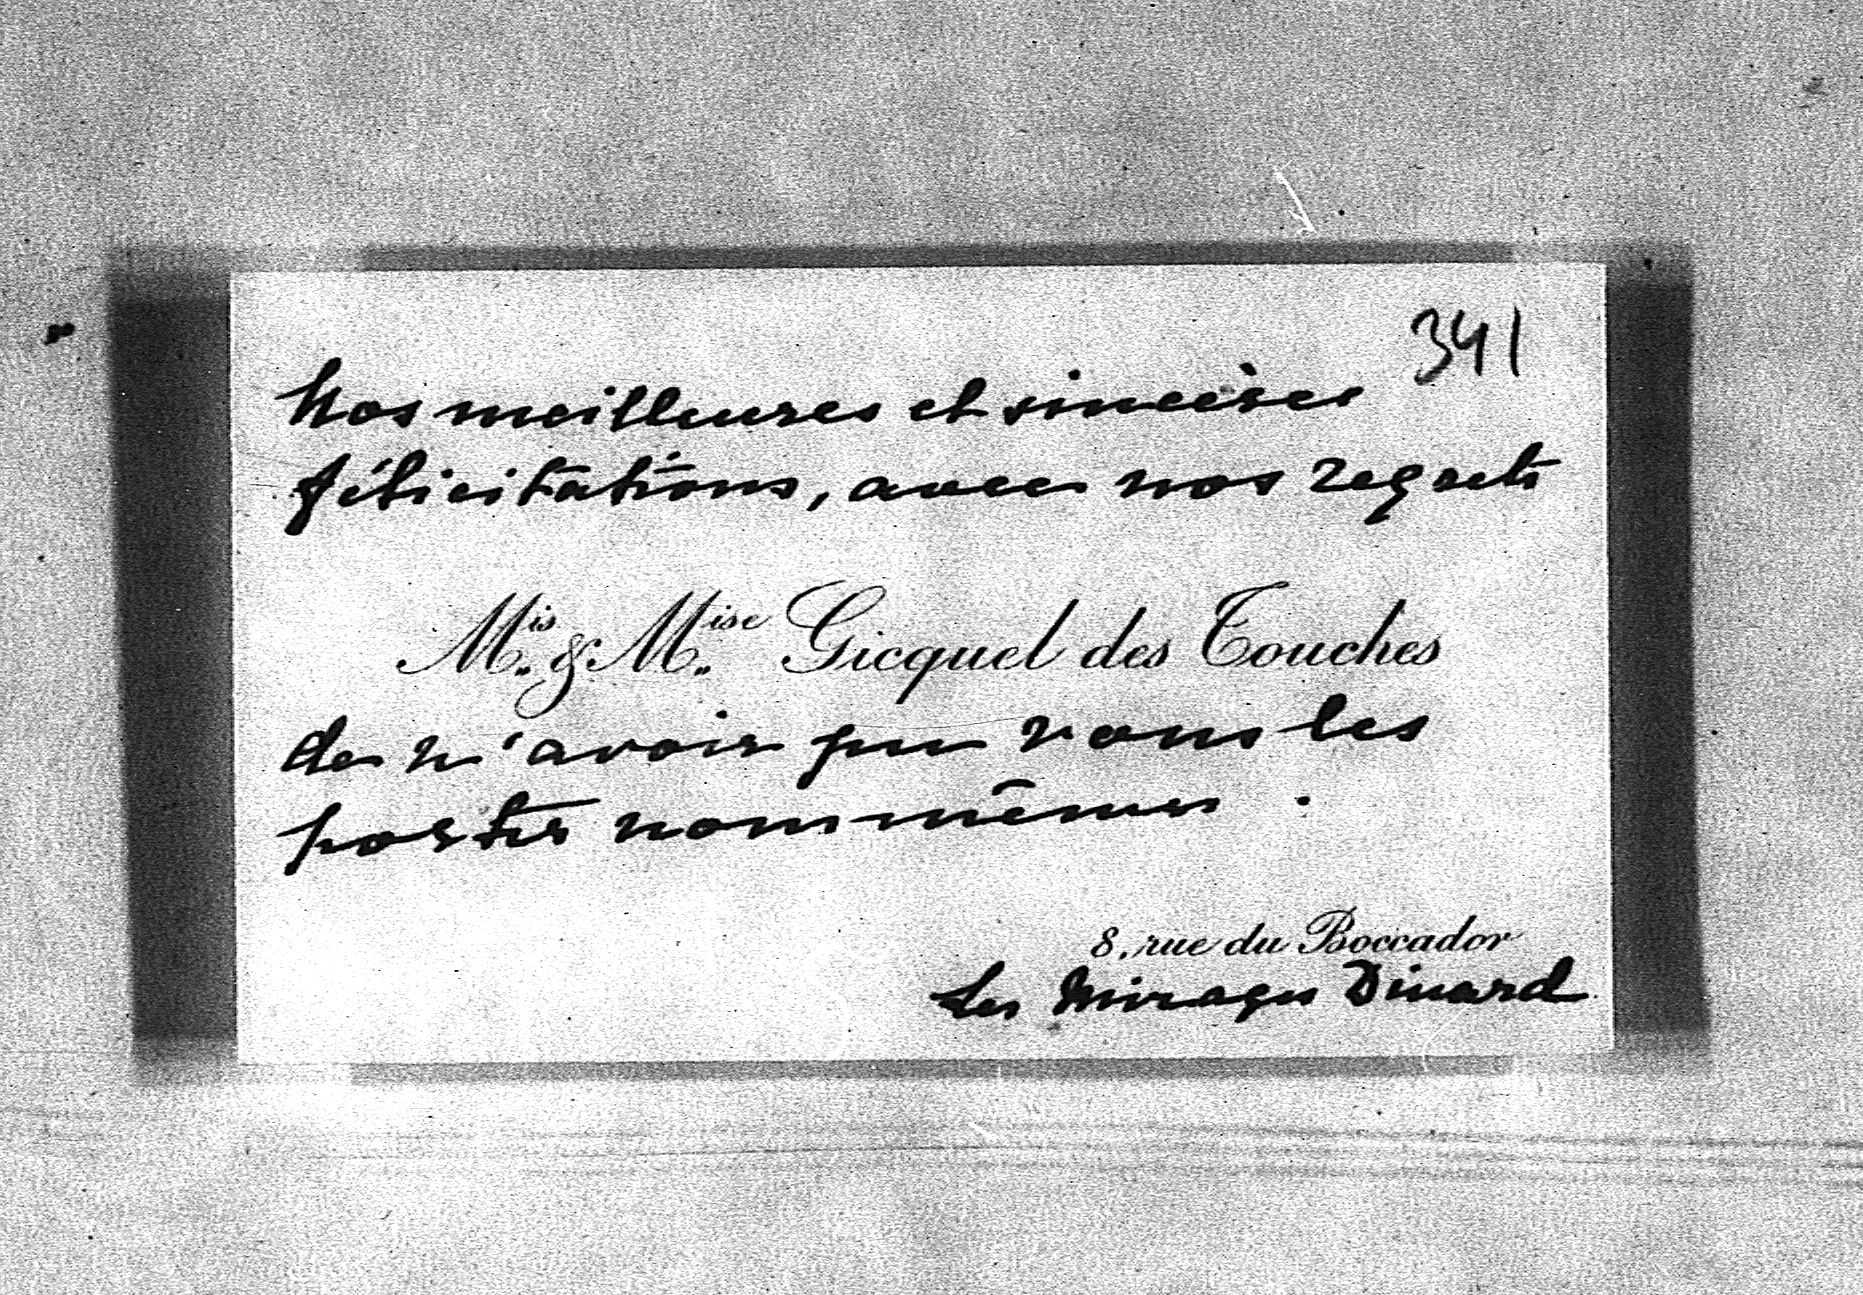 341
Nos meilleures et sincères
félicitations, avec nos regrets
Mis & Mise Gicquel des Touches
de n'avoir pu vous les
porter nous mêmes.
8, rue du Boccador
Les Mirages Dinard